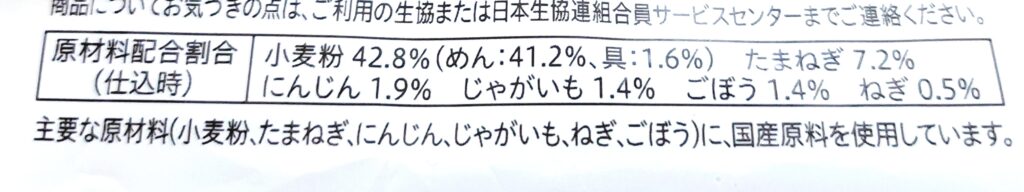 商品についてお気づきの点は、ご利用の生協または日本生協連組合員サービスセンターまでご連絡ください。
原材料配合割合
(仕込時)
小麦粉 42.8%(めん:41.2%、具:1.6%) たまねぎ 7.2%
にんじん 1.9% じゃがいも 1.4% ごぼう 1.4% ねぎ 0.5%
主要な原材料(小麦粉、たまねぎ、にんじん、じゃがいも、ねぎ、ごぼう)に、国産原料を使用しています。